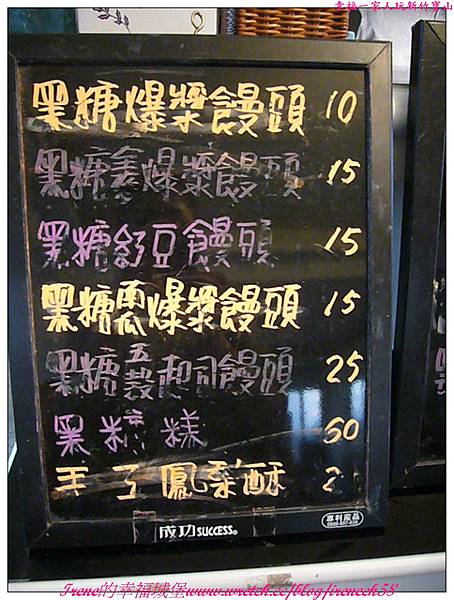 幸福一家人玩新竹寶山
黑糖爆漿饅頭 10
黑糖爆漿饅頭 15
黑糖紅豆饅頭 15
黑糖南瓜爆漿饅頭 15
黑糖五穀起司饅頭 25
黑糖糕 50
鳳梨酥 2
成功 SUCCESS®
專利產品
Irene的幸福城堡www.wretch.cc/blog/irenech58